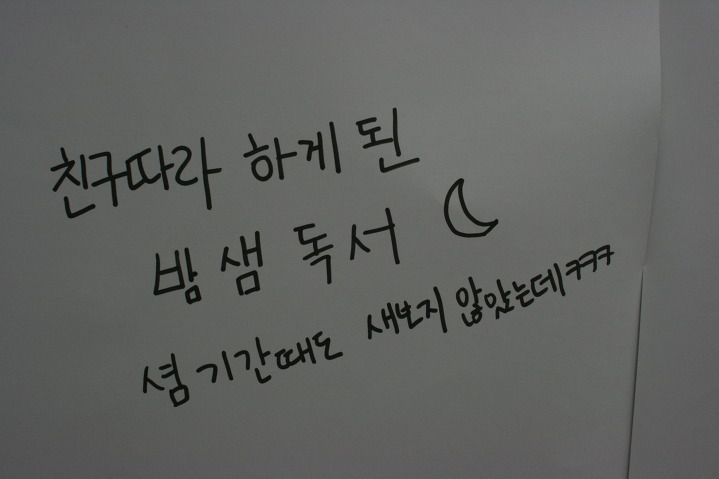 친구따라 하게 된
밤샘 독서
셤 기간때도 새보지 않았는데ㅋㅋㅋ